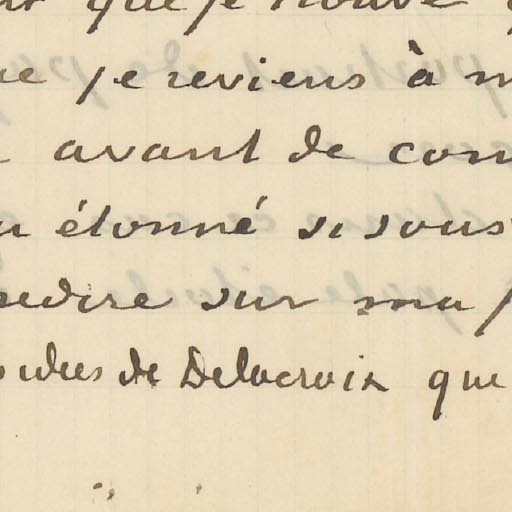 que je trouve
je reviens à
avant de com
étonné si sous
redire sur ma
idées de Delacroix que